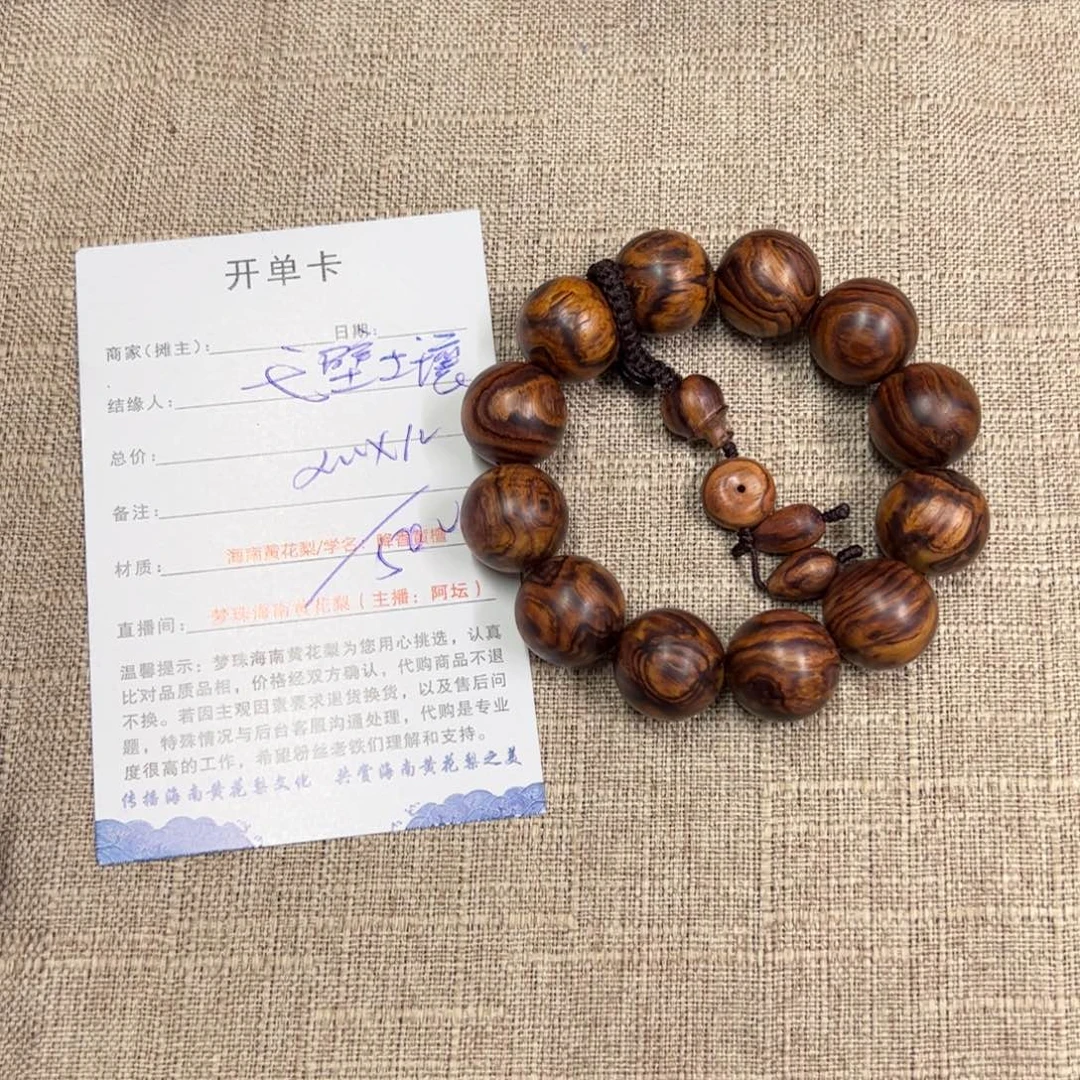 开单卡
日期:
商家(摊主):
结缘人:
壁土壤
总价:
备注:
材质: 海南黄花梨/学名: 降香黄檀
直播间: 梦珠海南黄花梨(主播:阿坛)
温馨提示:梦珠海南黄花梨为您用心挑选,认真
比对品质品相,价格经双方确认,代购商品不退
不换。若因主观因素要求退货换货,以及售后问
题,特殊情况与后台客服沟通处理,代购是专业
度很高的工作,希望粉丝老铁们理解和支持。
传播海南黄花梨文化 共赏海南黄花梨之美